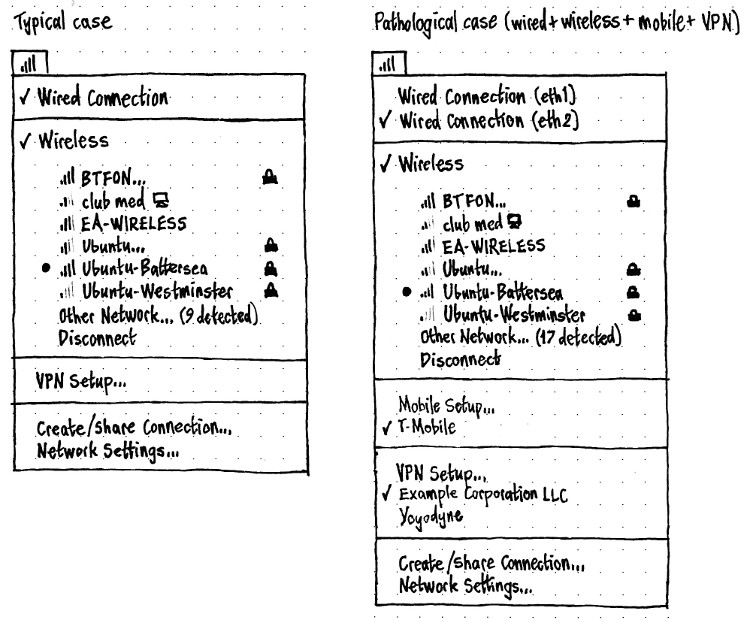 Typical case
✓ Wired Connection
✓ Wireless
BTFON...
club med
EA-WIRELESS
Ubuntu...
• Ubuntu-Battersea
Ubuntu-Westminster
Other Network... (9 detected)
Disconnect
VPN Setup...
Create/share Connection...
Network Settings...
Pathological case (wired+wireless+mobile+ VPN)
Wired Connection (eth1)
✓ Wired Connection (eth2)
✓ Wireless
BTFON...
club med
EA-WIRELESS
Ubuntu...
• Ubuntu-Battersea
Ubuntu-Westminster
Other Network... (17 detected)
Disconnect
Mobile Setup...
✓ T-Mobile
VPN Setup...
✓ Example Corporation LLC
Yoyodyne
Create/share Connection...
Network Settings...